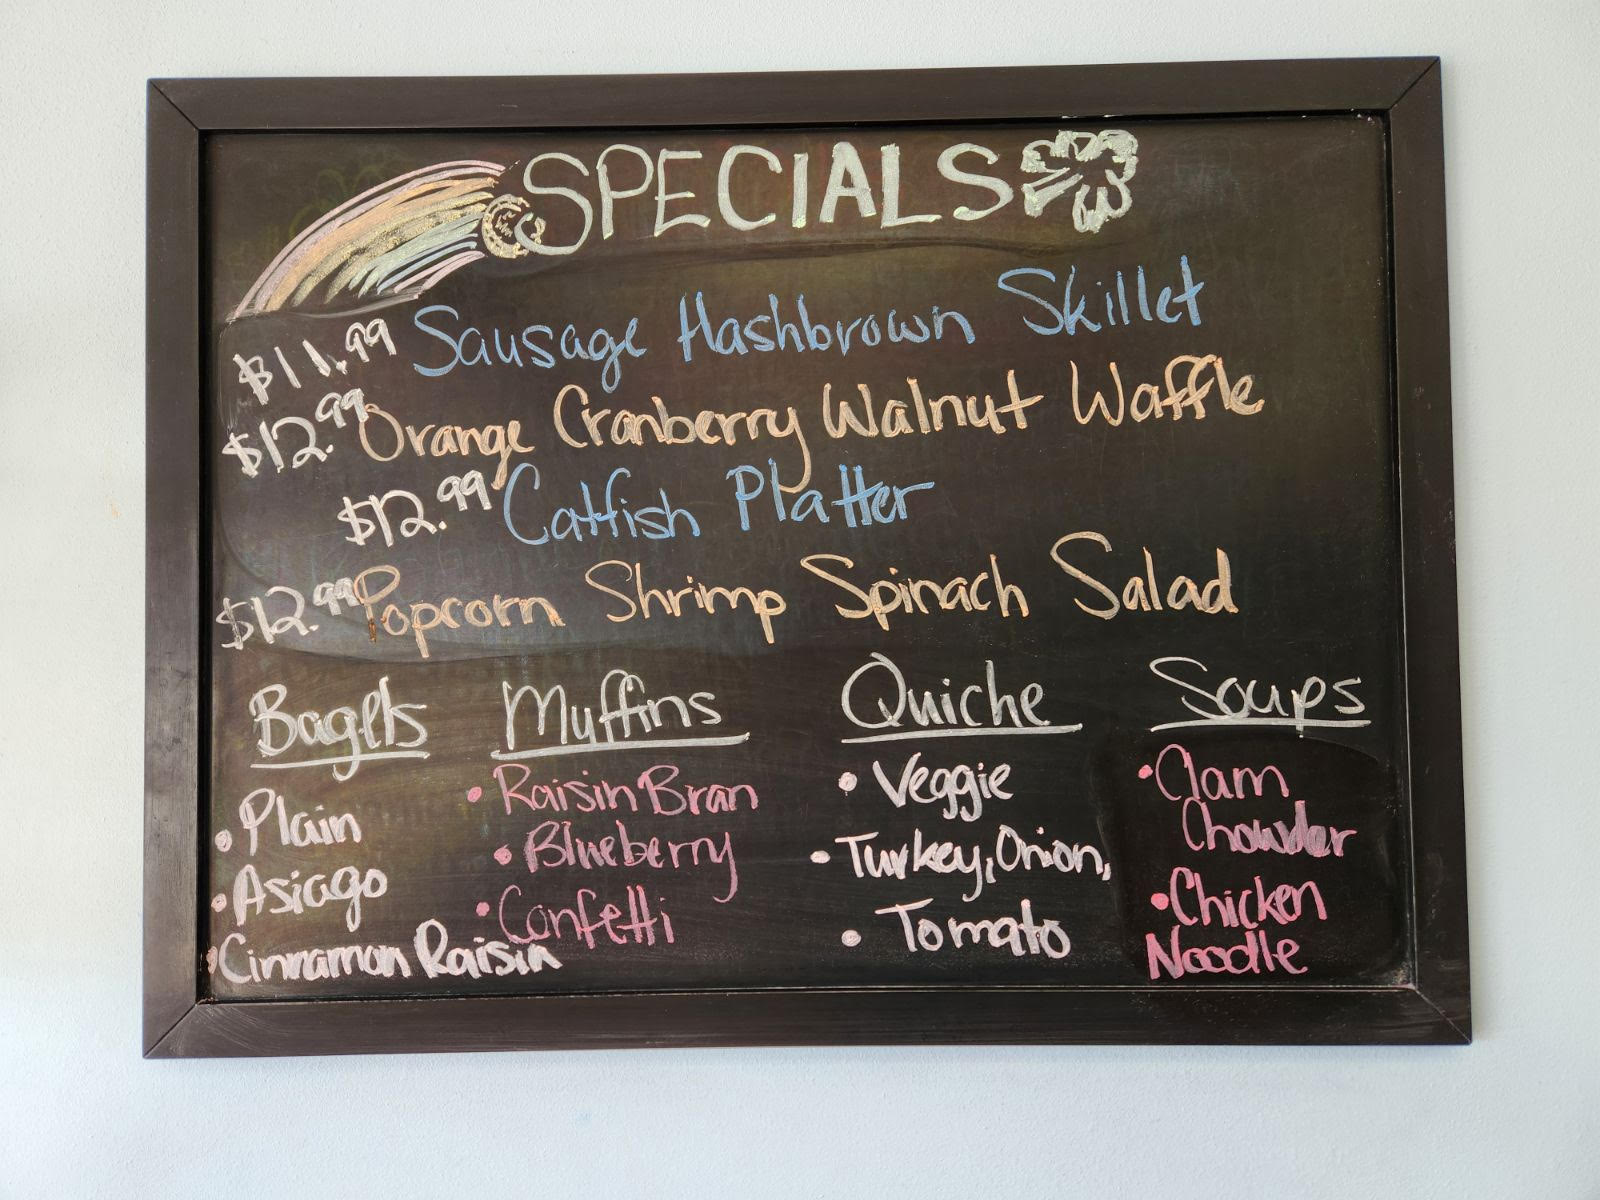 SPECIALS
$11.99 Sausage Hashbrown Skillet
$12.99 Orange Cranberry Walnut Waffle
$12.99 Catfish Platter
$12.99 Popcorn Shrimp Spinach Salad
Bagels
• Plain
• Asiago
• Cinnamon Raisin
Muffins
• Raisin Bran
• Blueberry
• Confetti
Quiche
• Veggie
• Turkey, Onion,
• Tomato
Soups
• Clam
Chowder
• Chicken
Noodle